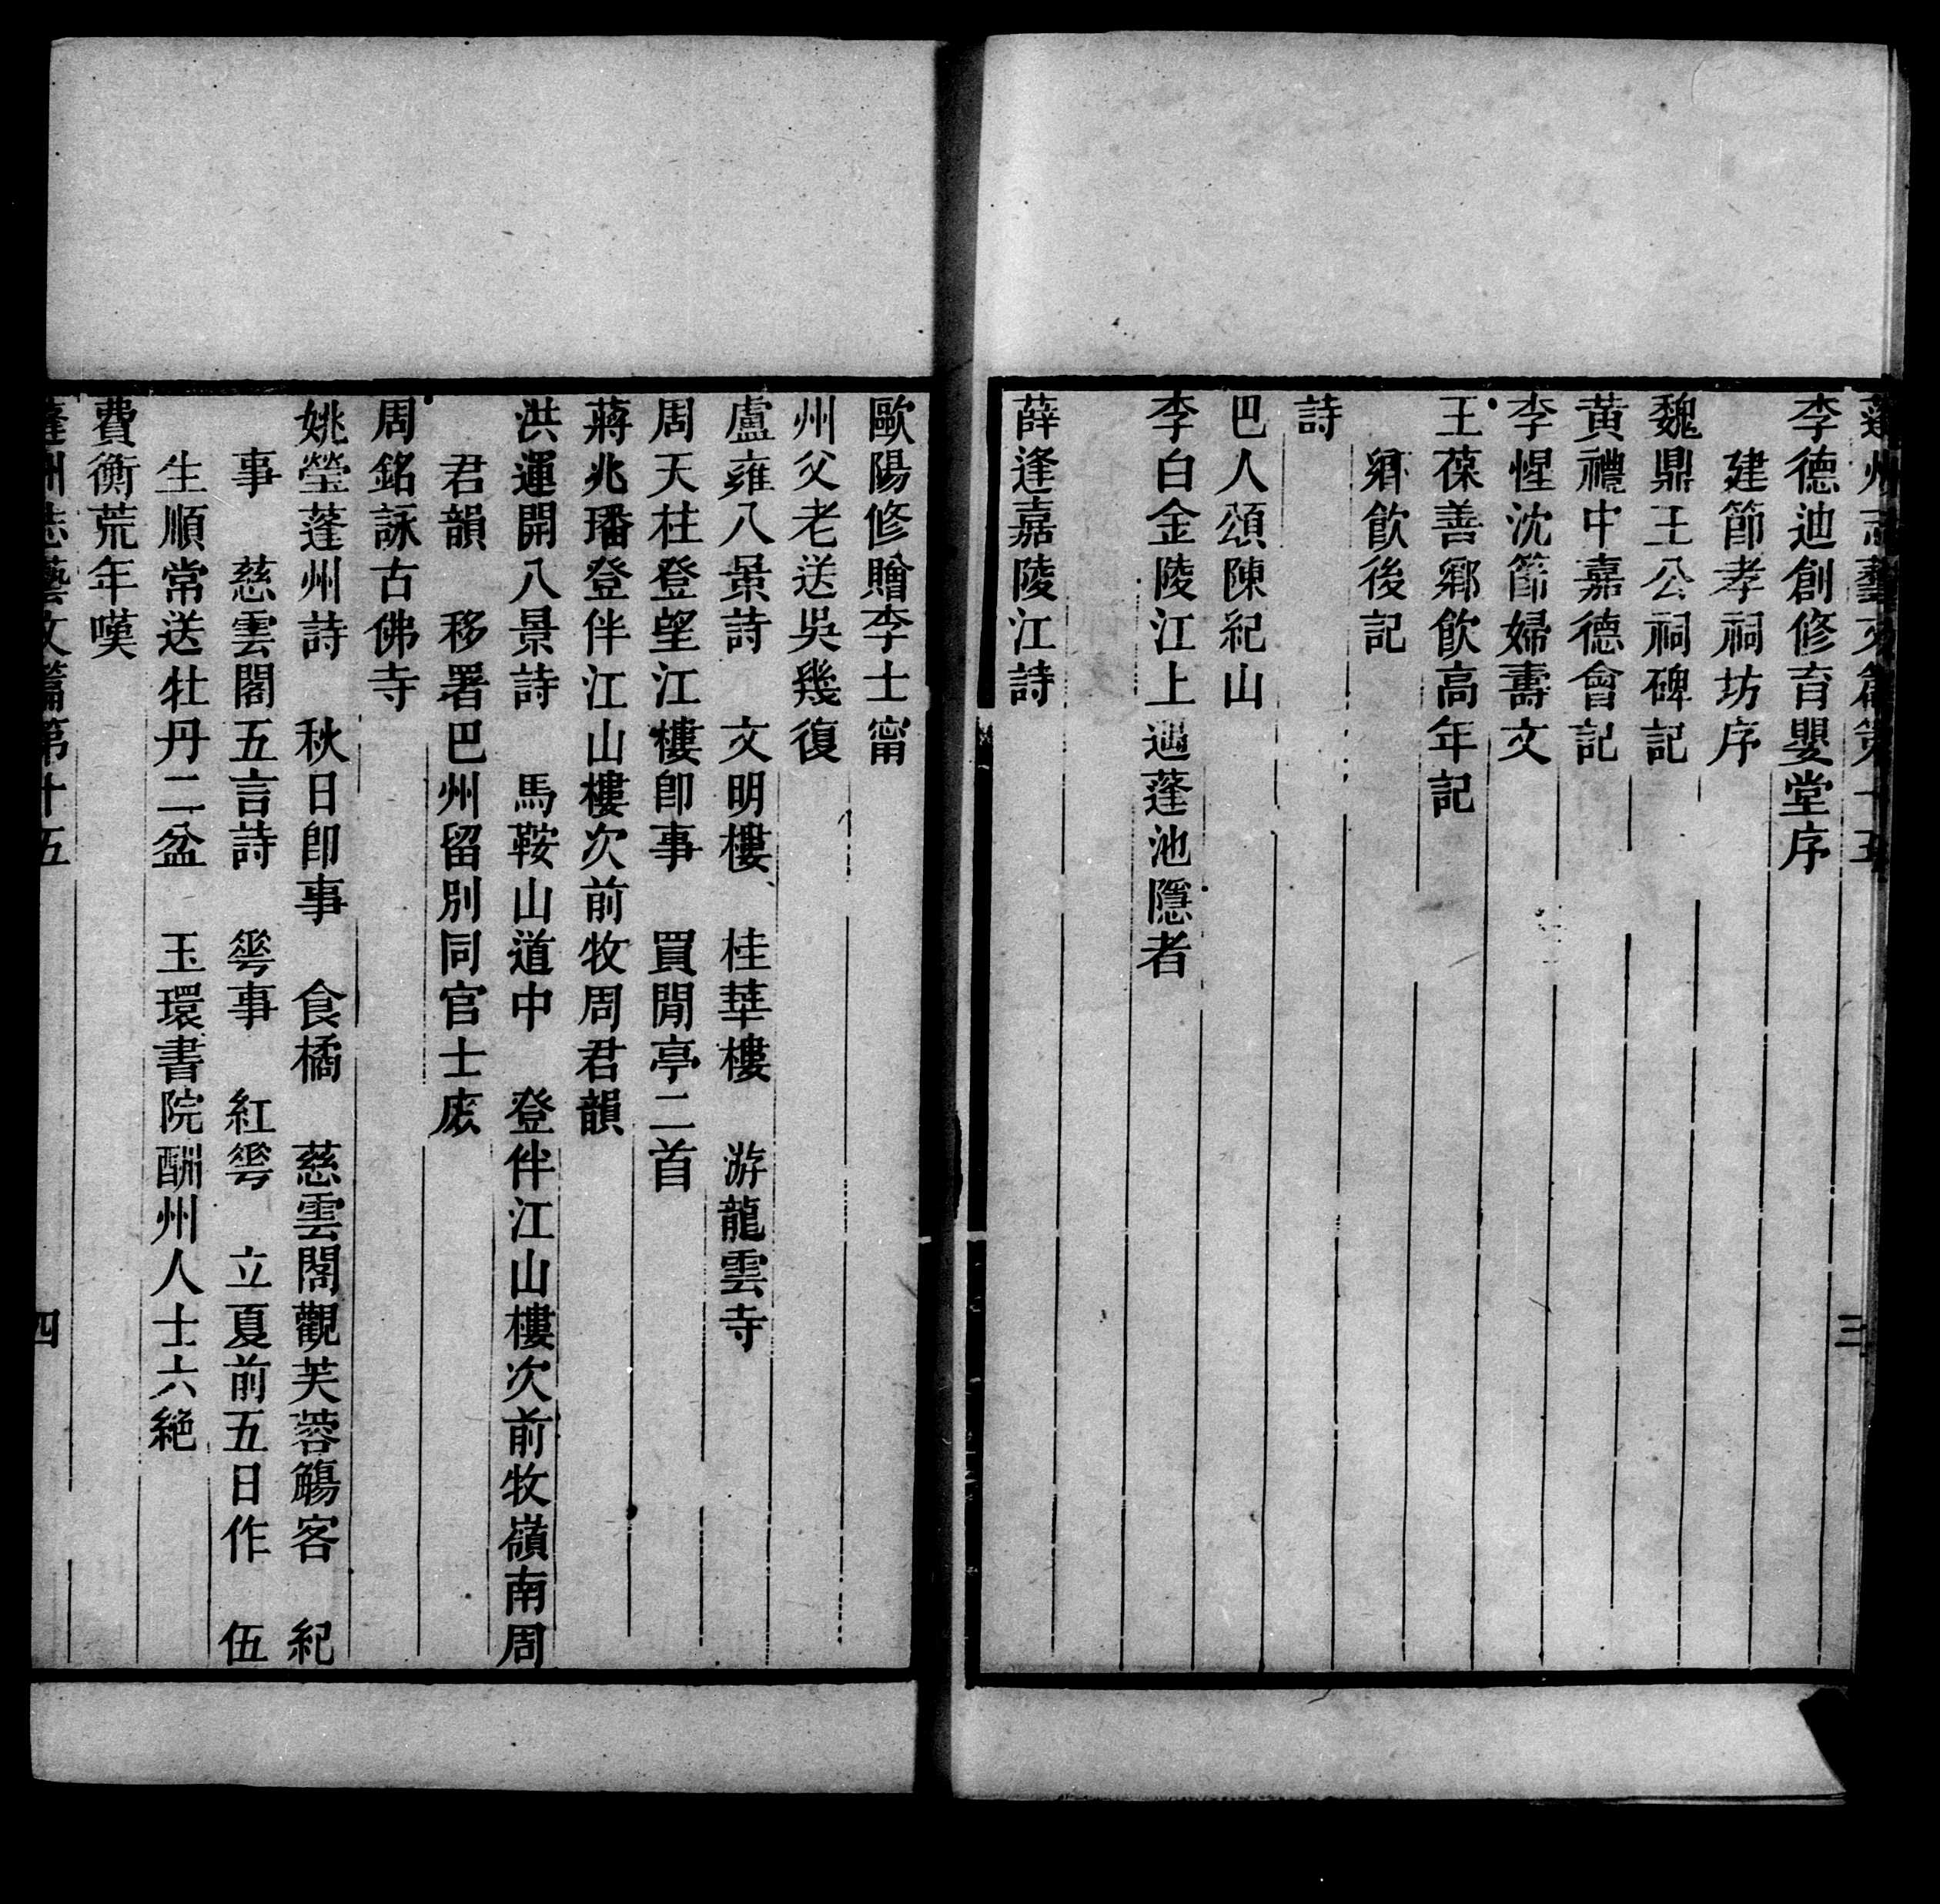 蓬州志藝文篇第十五　三
李德迪創修育嬰堂序
建節孝祠坊序
魏鼎王公祠碑記
黃禮中嘉德會記
李惺沈節婦壽文
王葆善鄉飲高年記
鄉飲後記
詩
巴人頌陳紀山
李白金陵江上遇蓬池隱者
薛逢嘉陵江詩
歐陽修贈李士甯
州父老送吳幾復
盧雍八景詩　文明樓　桂華樓　游龍雲寺
周天柱登望江樓卽事　買閒亭二首
蔣兆璠登伴江山樓次前牧周君韻
洪運開八景詩　馬鞍山道中　登伴江山樓次前牧嶺南周
君韻　移署巴州留別同官士庶
周銘詠古佛寺
姚瑩蓬州詩　秋日卽事　食橘　慈雲閣觀芙蓉觴客　紀
事　慈雲閣五言詩　蕚事　紅蕚　立夏前五日作　伍
生順常送牡丹二盆　玉環書院酬州人士六絕
費衡荒年嘆
蓬州志藝文篇第十五　四